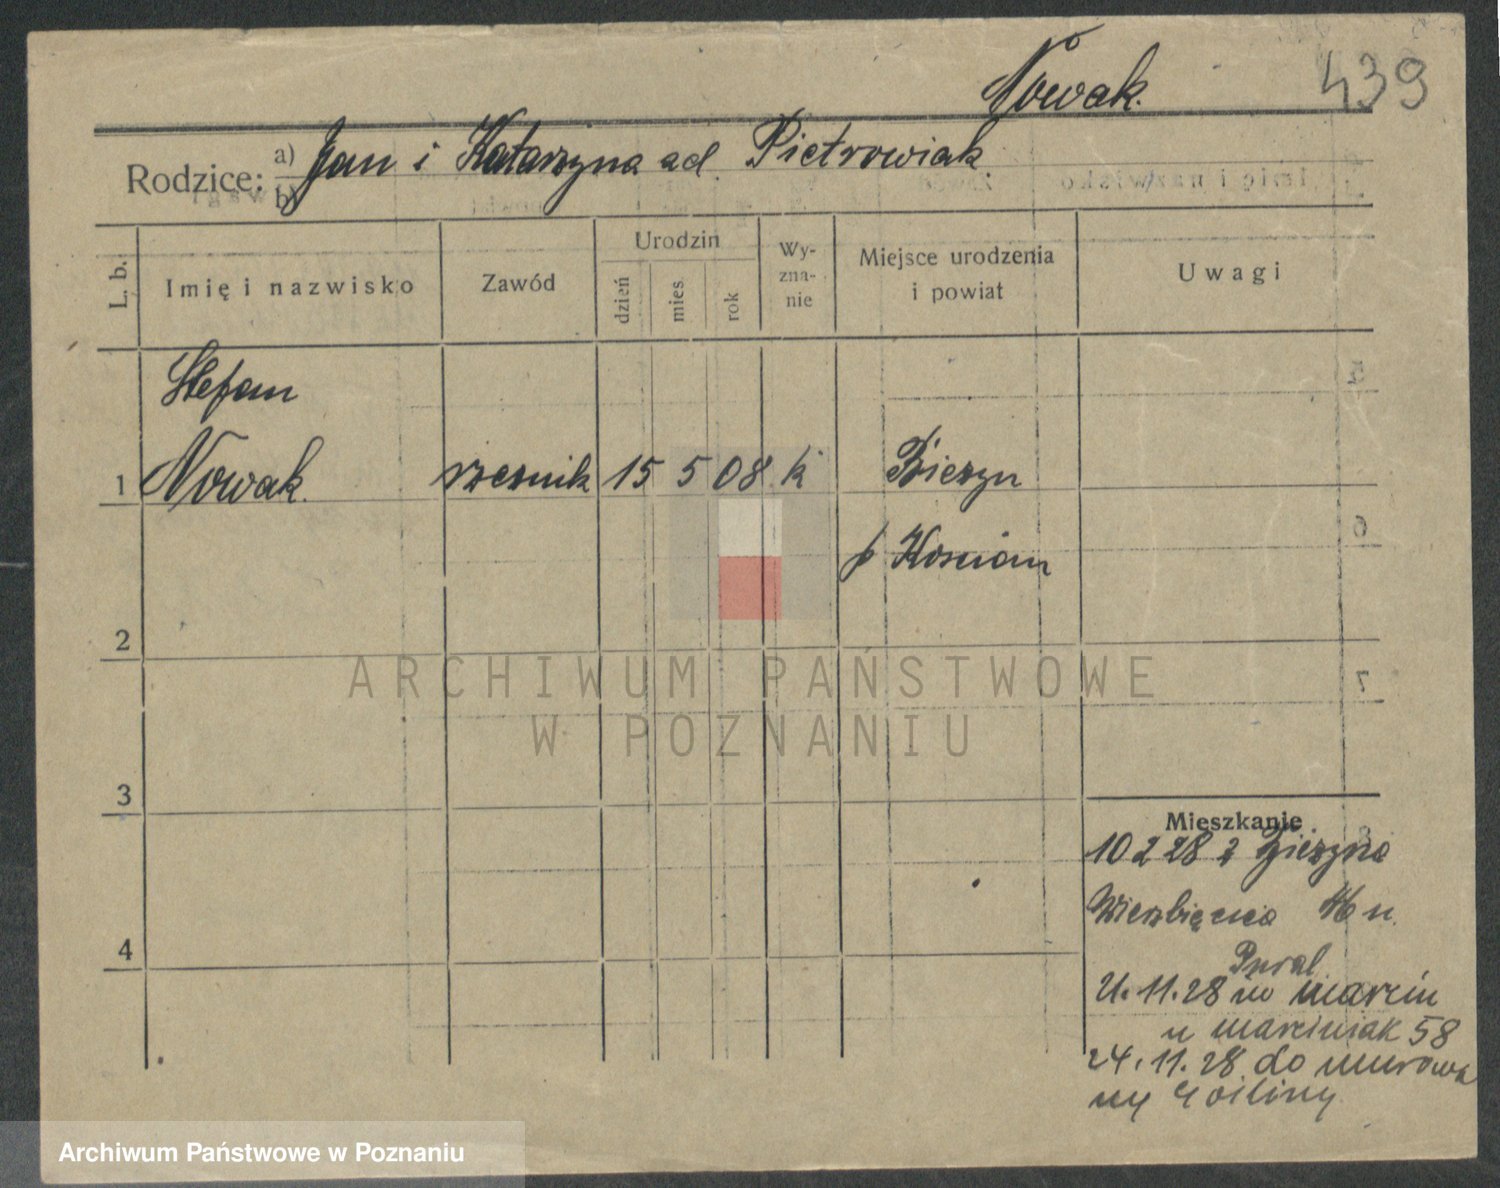 Nowak. 439
Rodzice: a) Jan i Katarzyna ad. Pietrowiak
b)
L. b. Imię i nazwisko Zawód Urodzin dzień mies. rok Wy-zna-nie Miejsce urodzenia i powiat Uwagi
Stefan
1 Nowak. rzeznik 15 5 08 k Bieżyn
p Kościan
2
ARCHIWUM PAŃSTWOWE
W POZNANIU
3
Mieszkanie
10 2 28 z
4
21.11.28 marcin
u marciniak 58
24.11.28 do murowa
ny Gośliny
Archiwum Państwowe w Poznaniu